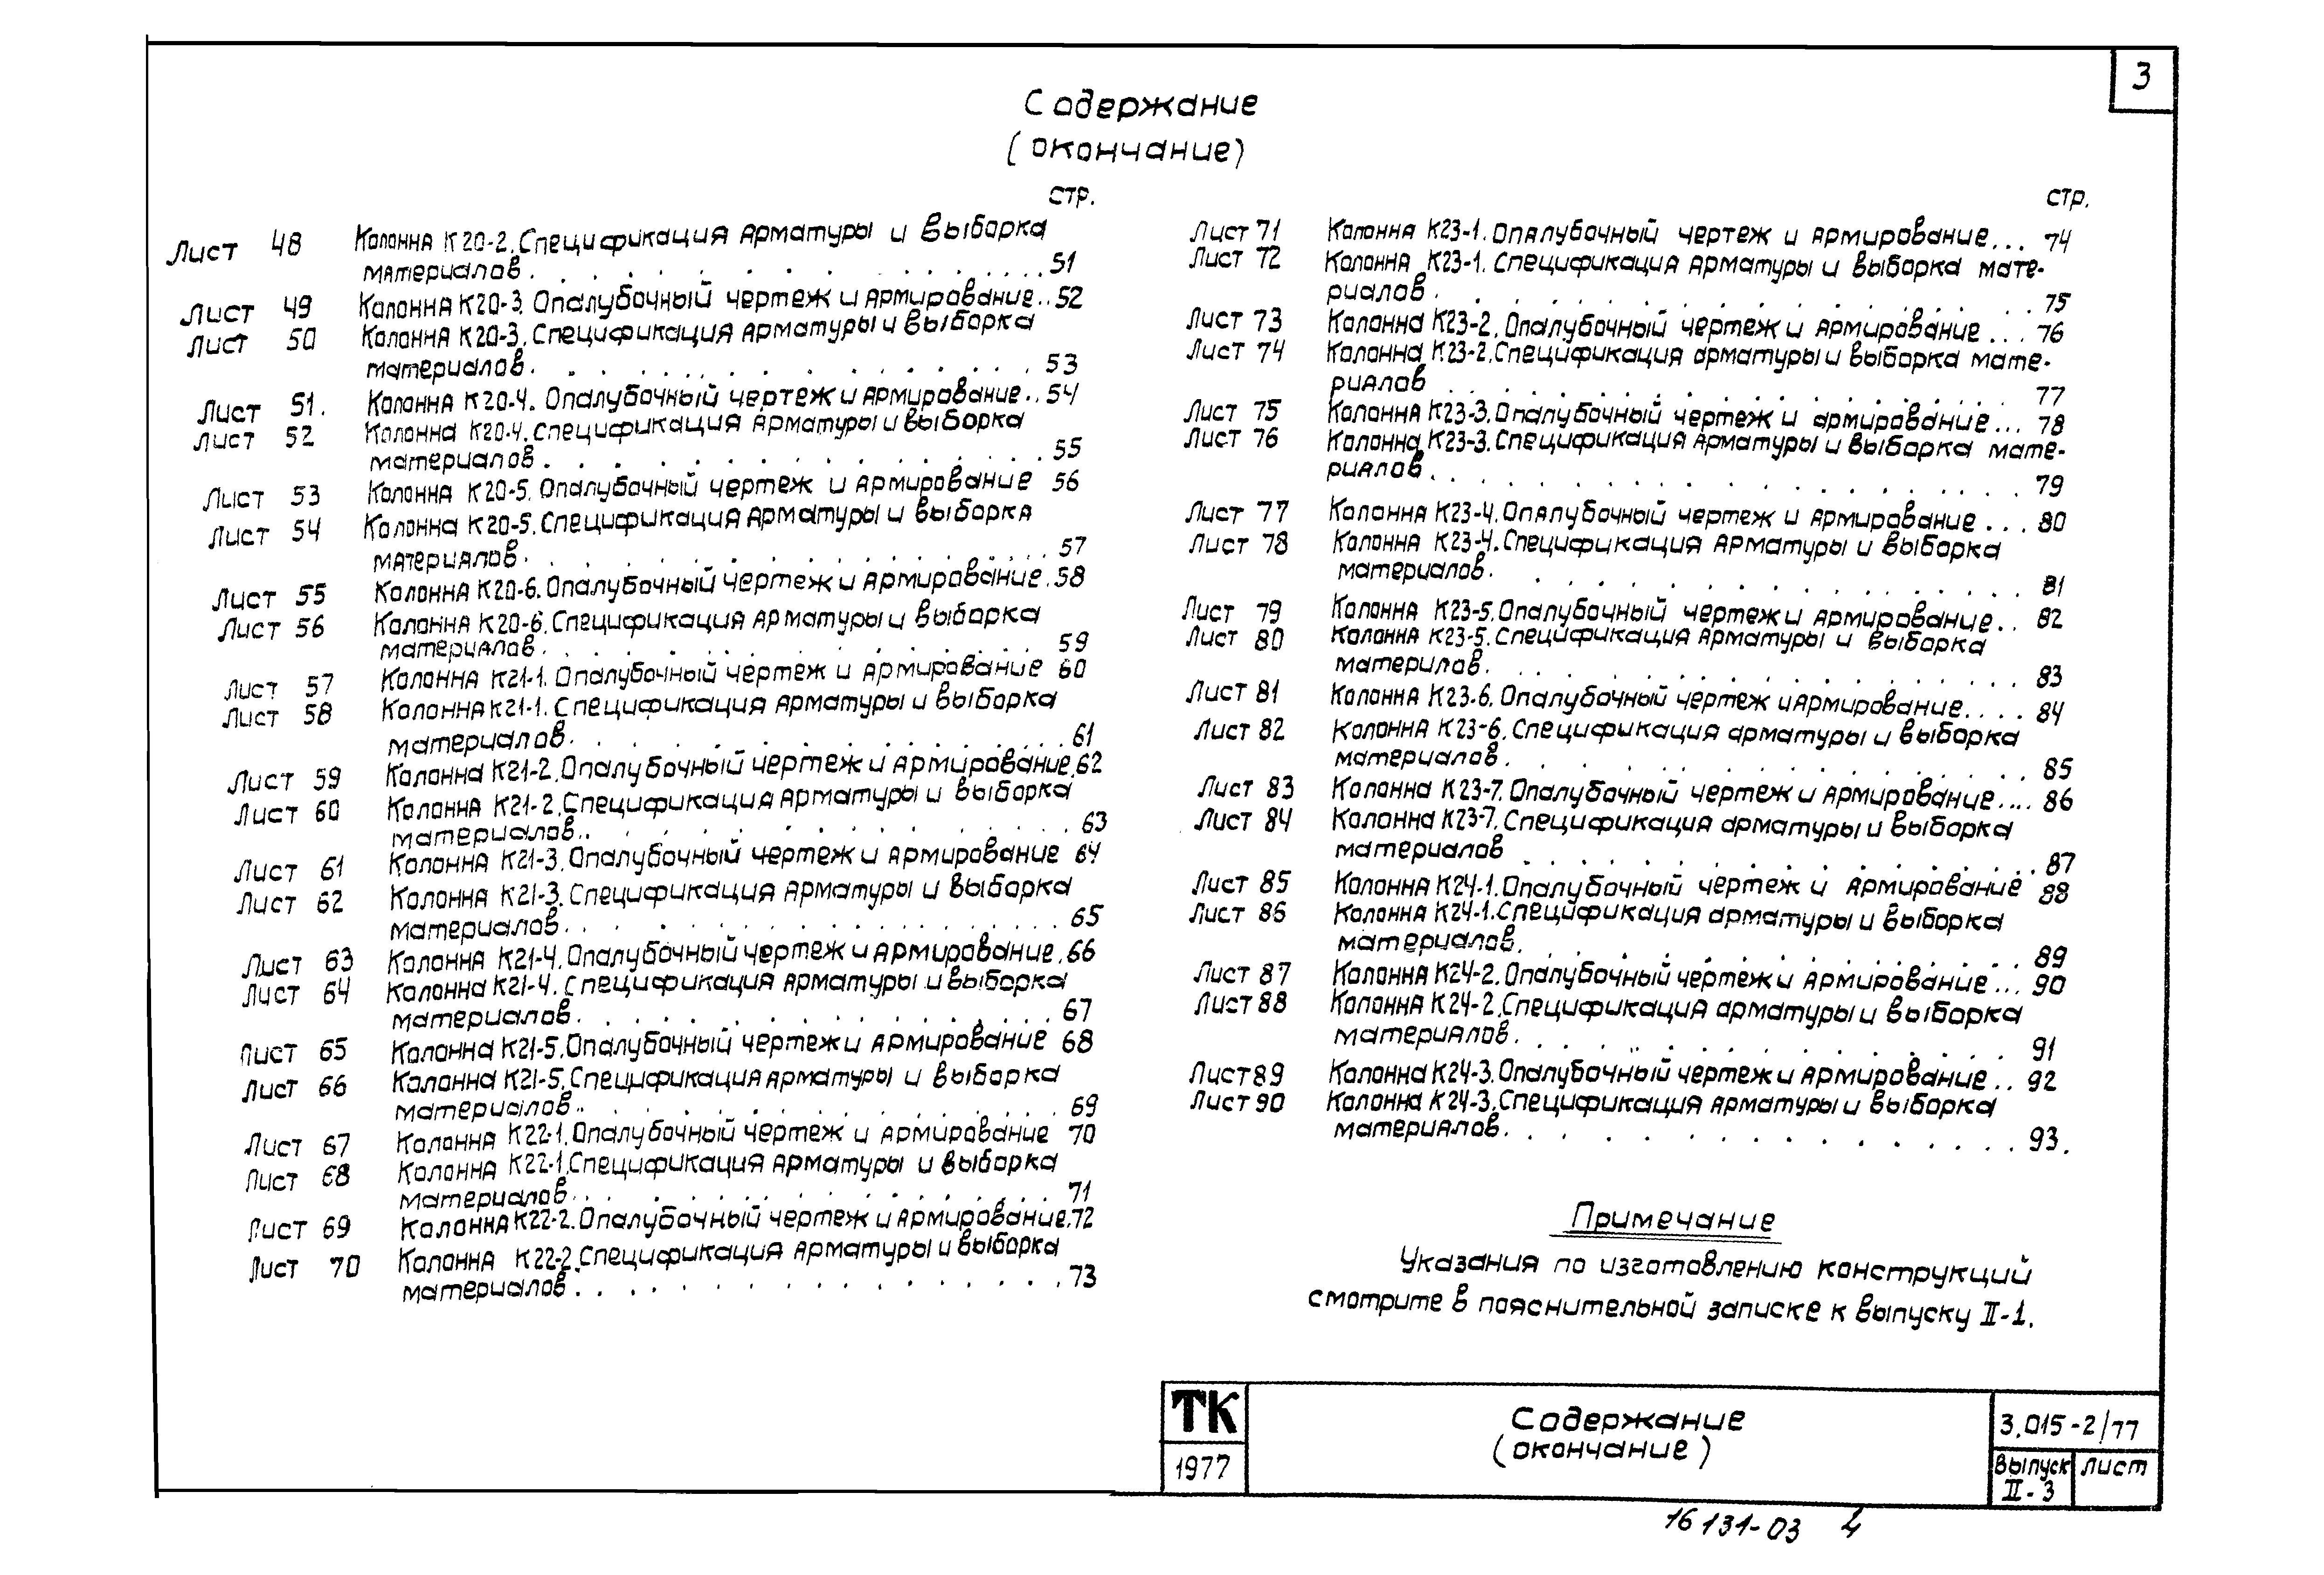 3
Содержание
(окончание)
стр.
Лист 48 Колонна К20-2. Спецификация арматуры и выборка
материалов. . . . . . . . . . . . . . 51
Лист 49 Колонна К20-3. Опалубочный чертеж и армирование.. 52
Лист 50 Колонна К20-3. Спецификация арматуры и выборка
материалов. . . . . . . . . . . . . . 53
Лист 51. Колонна К20-4. Опалубочный чертеж и армирование.. 54
Лист 52 Колонна К20-4. Спецификация арматуры и выборка
материалов. . . . . . . . . . . . . . 55
Лист 53 Колонна К20-5. Опалубочный чертеж и армирование 56
Лист 54 Колонна К20-5. Спецификация арматуры и выборка
материалов. . . . . . . . . . . . . . 57
Лист 55 Колонна К20-6. Опалубочный чертеж и армирование. 58
Лист 56 Колонна К20-6. Спецификация арматуры и выборка
материалов. . . . . . . . . . . . . . 59
Лист 57 Колонна К21-1. Опалубочный чертеж и армирование 60
Лист 58 Колонна К21-1. Спецификация арматуры и выборка
материалов. . . . . . . . . . . . . . 61
Лист 59 Колонна К21-2. Опалубочный чертеж и армирование. 62
Лист 60 Колонна К21-2. Спецификация арматуры и выборка
материалов. . . . . . . . . . . . . . 63
Лист 61 Колонна К21-3. Опалубочный чертеж и армирование 64
Лист 62 Колонна К21-3. Спецификация арматуры и выборка
материалов. . . . . . . . . . . . . . 65
Лист 63 Колонна К21-4. Опалубочный чертеж и армирование. 66
Лист 64 Колонна К21-4. Спецификация арматуры и выборка
материалов. . . . . . . . . . . . . . 67
Лист 65 Колонна К21-5. Опалубочный чертеж и армирование 68
Лист 66 Колонна К21-5. Спецификация арматуры и выборка
материалов. . . . . . . . . . . . . . 69
Лист 67 Колонна К22-1. Опалубочный чертеж и армирование 70
Лист 68 Колонна К22-1. Спецификация арматуры и выборка
материалов. . . . . . . . . . . . . . 71
Лист 69 Колонна К22-2. Опалубочный чертеж и армирование. 72
Лист 70 Колонна К22-2. Спецификация арматуры и выборка
материалов. . . . . . . . . . . . . . 73
стр.
Лист 71 Колонна К23-1. Опалубочный чертеж и армирование... 74
Лист 72 Колонна К23-1. Спецификация арматуры и выборка мате-
риалов. . . . . . . . . . . . . . 75
Лист 73 Колонна К23-2. Опалубочный чертеж и армирование... 76
Лист 74 Колонна К23-2. Спецификация арматуры и выборка мате-
риалов . . . . . . . . . . . . . . 77
Лист 75 Колонна К23-3. Опалубочный чертеж и армирование... 78
Лист 76 Колонна К23-3. Спецификация арматуры и выборка мате-
риалов. . . . . . . . . . . . . . 79
Лист 77 Колонна К23-4. Опалубочный чертеж и армирование ... 80
Лист 78 Колонна К23-4. Спецификация арматуры и выборка
материалов. . . . . . . . . . . . . . 81
Лист 79 Колонна К23-5. Опалубочный чертеж и армирование.. 82
Лист 80 Колонна К23-5. Спецификация арматуры и выборка
материлов. . . . . . . . . . . . . . 83
Лист 81 Колонна К23-6. Опалубочный чертеж и армирование.... 84
Лист 82 Колонна К23-6. Спецификация арматуры и выборка
материалов. . . . . . . . . . . . . . 85
Лист 83 Колонна К23-7. Опалубочный чертеж и армирование.... 86
Лист 84 Колонна К23-7. Спецификация арматуры и выборка
материалов . . . . . . . . . . . . . . 87
Лист 85 Колонна К24-1. Опалубочный чертеж и армирование 88
Лист 86 Колонна К24-1. Спецификация арматуры и выборка
материалов. . . . . . . . . . . . . . 89
Лист 87 Колонна К24-2. Опалубочный чертеж и армирование... 90
Лист 88 Колонна К24-2. Спецификация арматуры и выборка
материалов. . . . . . . . . . . . . . 91
Лист 89 Колонна К24-3. Опалубочный чертеж и армирование.. 92
Лист 90 Колонна К24-3. Спецификация арматуры и выборка
материалов. . . . . . . . . . . . . . 93.
Примечание
Указания по изготовлению конструкций
смотрите в пояснительной записке к выпуску II-1.
ТК
1977
Содержание
(окончание)
3.015-2/77
Выпуск
II-3
Лист
16131-03 4